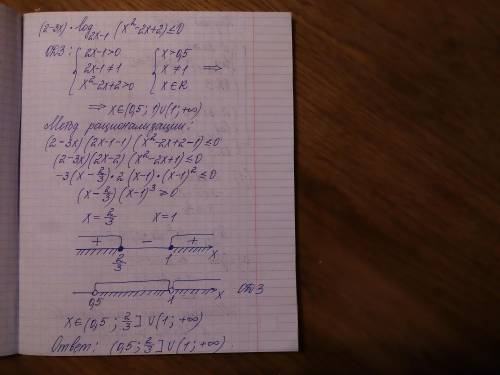 (2-3x)·log₂ₓ₋₁(x²-2x+2)≤0
ОДЗ: { 2x-1>0 { x>0,5
2x-1≠1 x≠1 ⇒
x²-2x+2>0 x∈R
⇒ x∈(0,5; 1)∪(1;+∞)
Метод рационализации:
(2-3x)(2x-1-1)(x²-2x+2-1)≤0
(2-3x)(2x-2)(x²-2x+1)≤0
-3(x-2/3)·2(x-1)·(x-1)²≤0
(x-2/3)(x-1)³≥0
x=2/3 x=1
+ - +
2/3 1 x
0,5 1 x ОДЗ
x∈(0,5; 2/3]∪(1;+∞)
Ответ: (0,5; 2/3]∪(1;+∞).